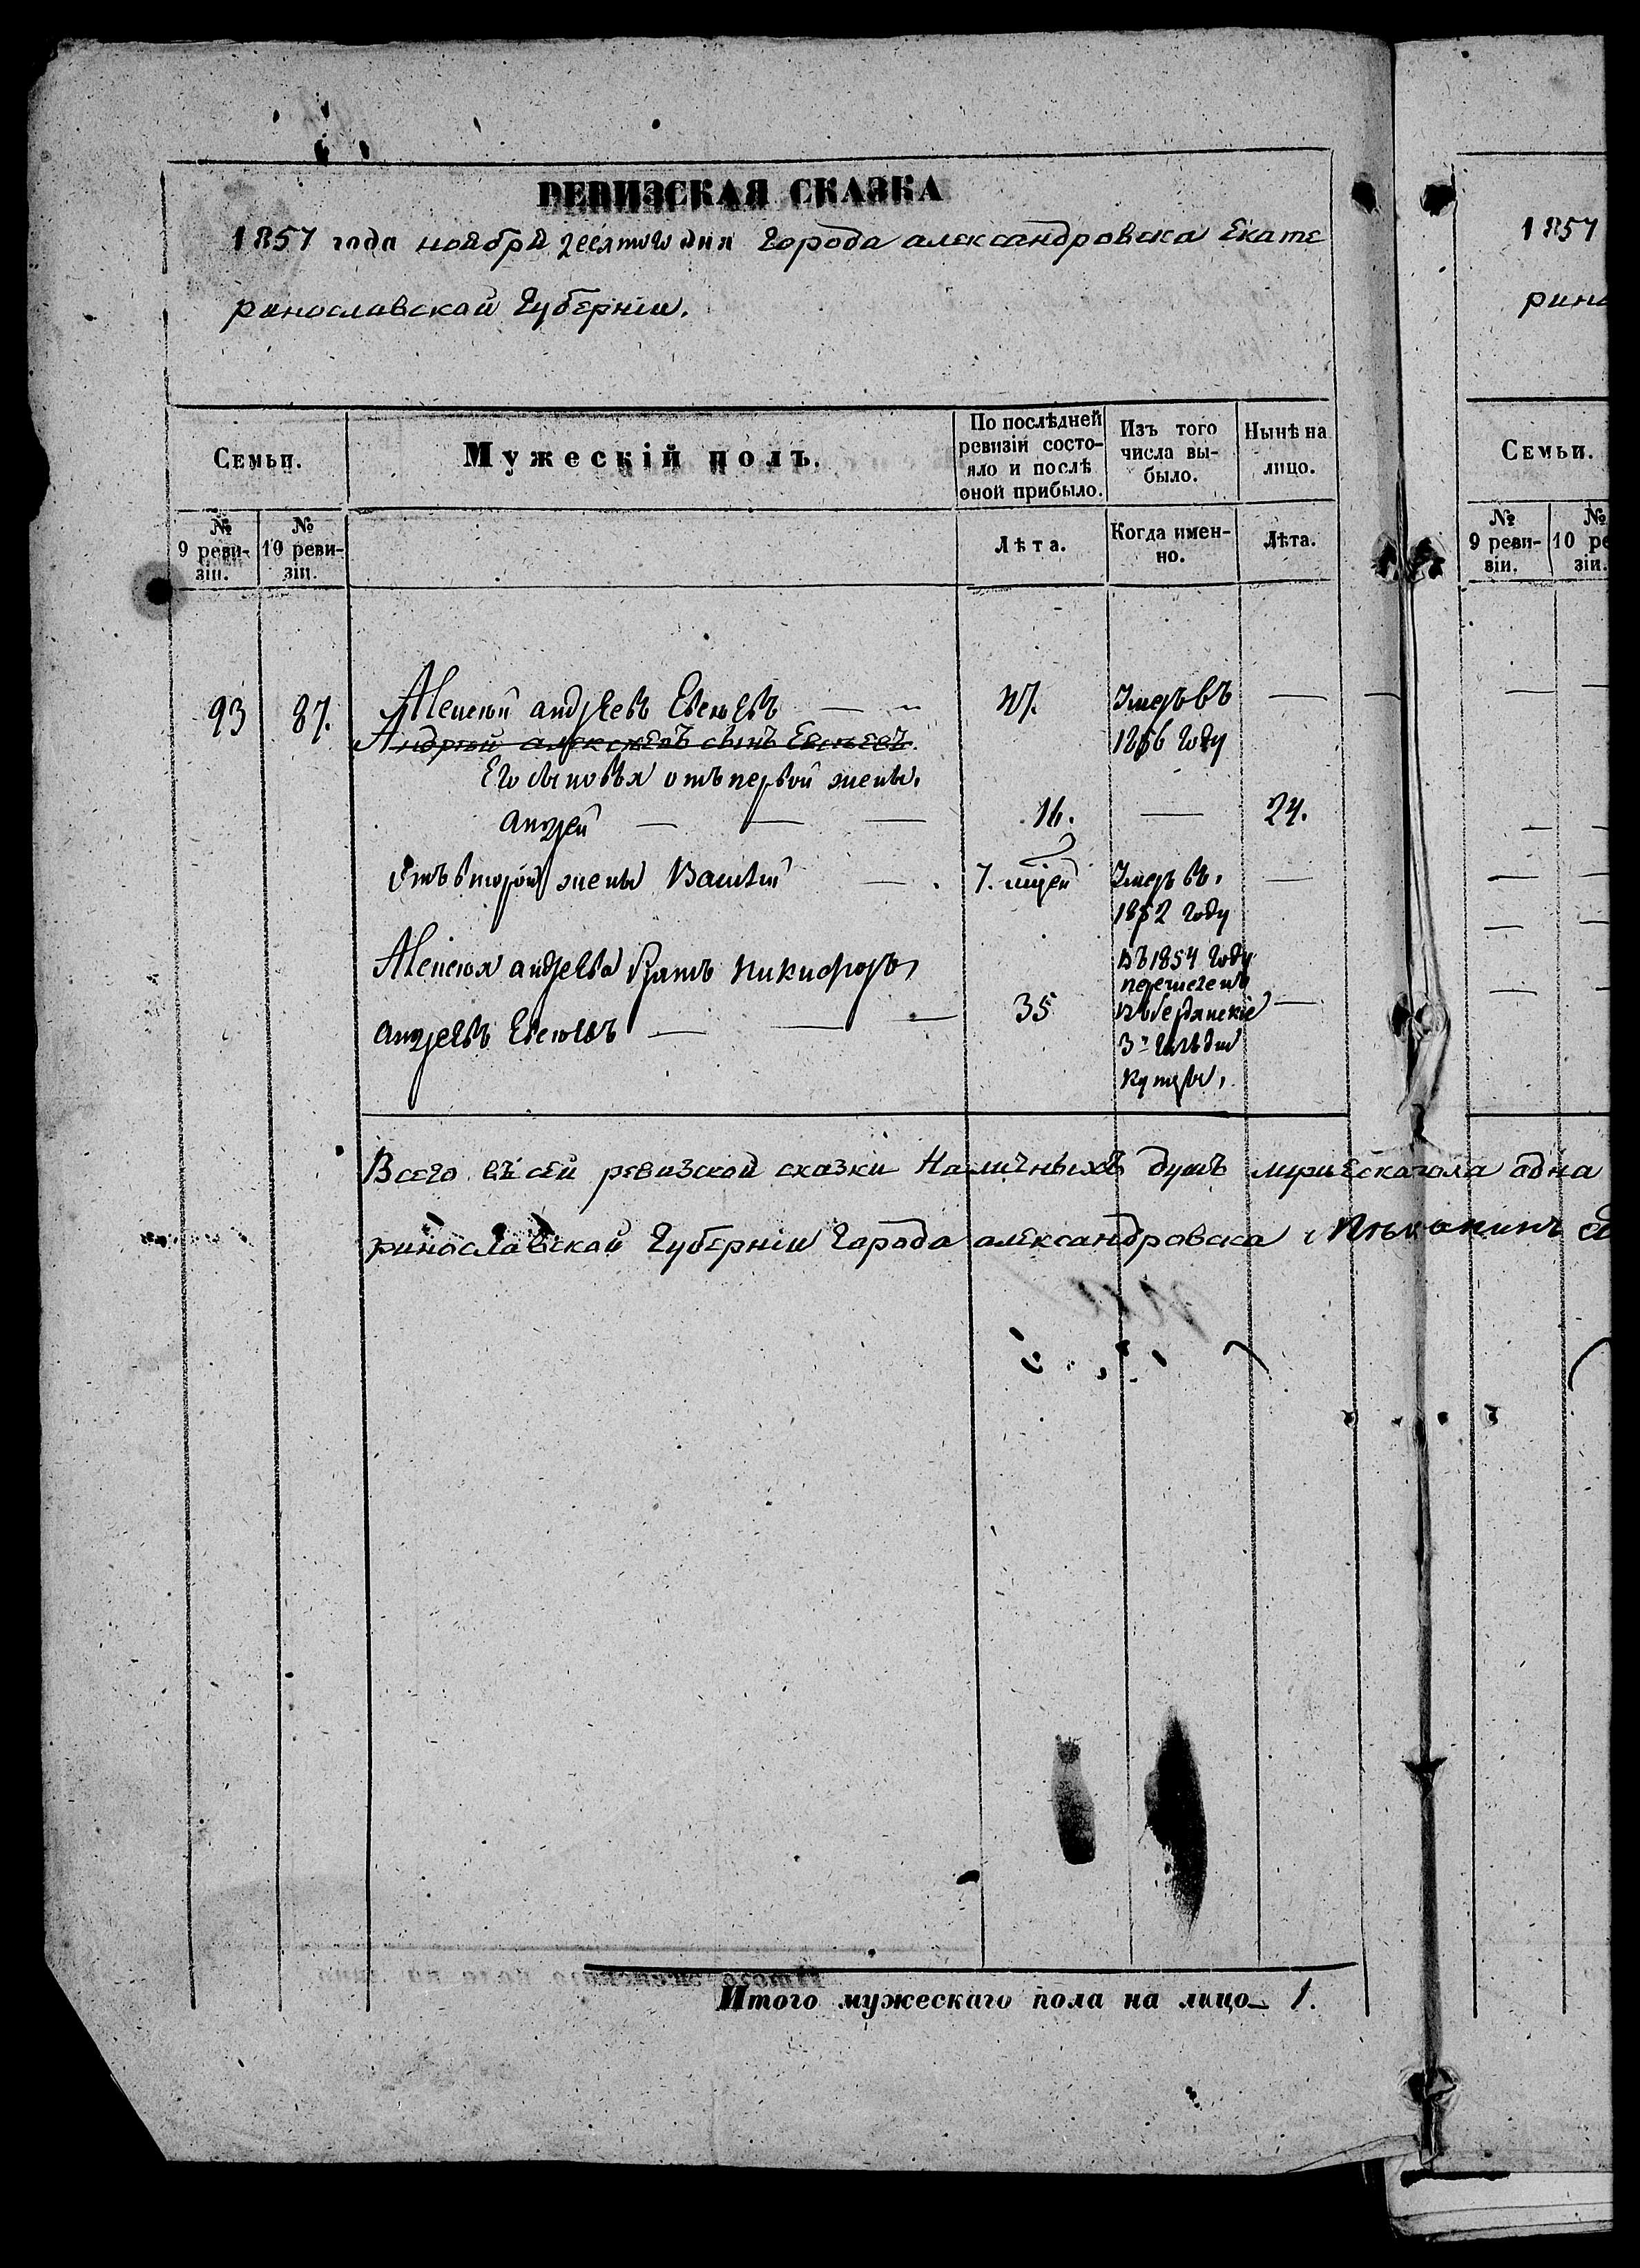 РЕВИЗСКАЯ СКАЗКА
1857 года ноября десятого дня Города александровска Екате
ринославской Губернии.
1857
рино
Семьи.
Мужескій полъ.
По послѣдней ревизіи состо-
яло и послѣ оной прибыло.
Изъ того числа вы-
было.
Нынѣ на лицо.
Семьи.
№ 9 реви-
зіи.
№ 10 реви-
зіи.
Лѣта.
Когда имен-
но.
Лѣта.
№ 9 реви-
зіи.
№ 10 ре
зіи.
93 87. Алексѣй андреевъ Евсюевъ — 47. Умеръ въ —
Андрей алексѣевъ сынъ Евсѣевъ. 1856 Году
Его сыновья отъ первой жены.
андрей — — — 16. — 24.
Отъ второй жены Василій — 7. мѣсяц Умеръ въ —
1852 Году
Алексѣя андреева братъ Никифоръ
андреевъ Евсюевъ — — — 35 —
Въ 1854 Году
перечисленъ
въ бердянскіе
3й Гильдіи
купцы.
Всего въ сей ревизской сказки Наличныхъ душъ мужеска пола одна
ринославской Губернии Города александровска
Итого мужескаго пола на лицо 1.